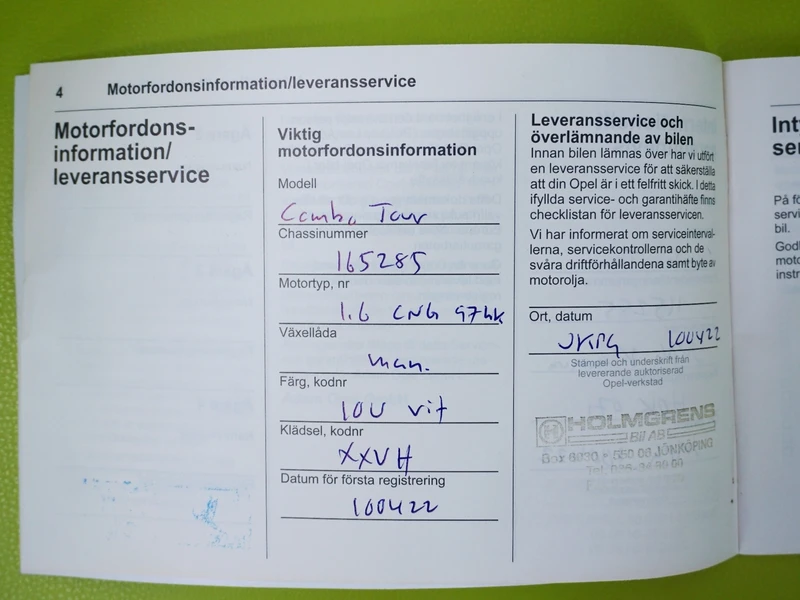 4 Motorfordonsinformation/leveransservice
Motorfordons-
information/
leveransservice
Viktig
motorfordonsinformation
Modell
Combo Tour
Chassinummer
165285
Motortyp, nr
1.6 CNG 97hk
Växellåda
man.
Färg, kodnr
10U vit
Klädsel, kodnr
XXVH
Datum för första registrering
100422
Leveransservice och
överlämnande av bilen
Innan bilen lämnas över har vi utfört
en leveransservice för att säkerställa
att din Opel är i ett felfritt skick. I detta
ifyllda service- och garantihäfte finns
checklistan för leveransservicen.
Vi har informerat om serviceinterval-
lerna, servicekontrollerna och de
svåra driftförhållandena samt byte av
motorolja.
Ort, datum
JKPG 100422
Stämpel och underskrift från
levererande auktoriserad
Opel-verkstad
HOLMGRENS
Bil AB
Box 6030 550 06 JÖNKÖPING
Tel
Int
ser
På fö
servi
bil.
Godk
moto
instr